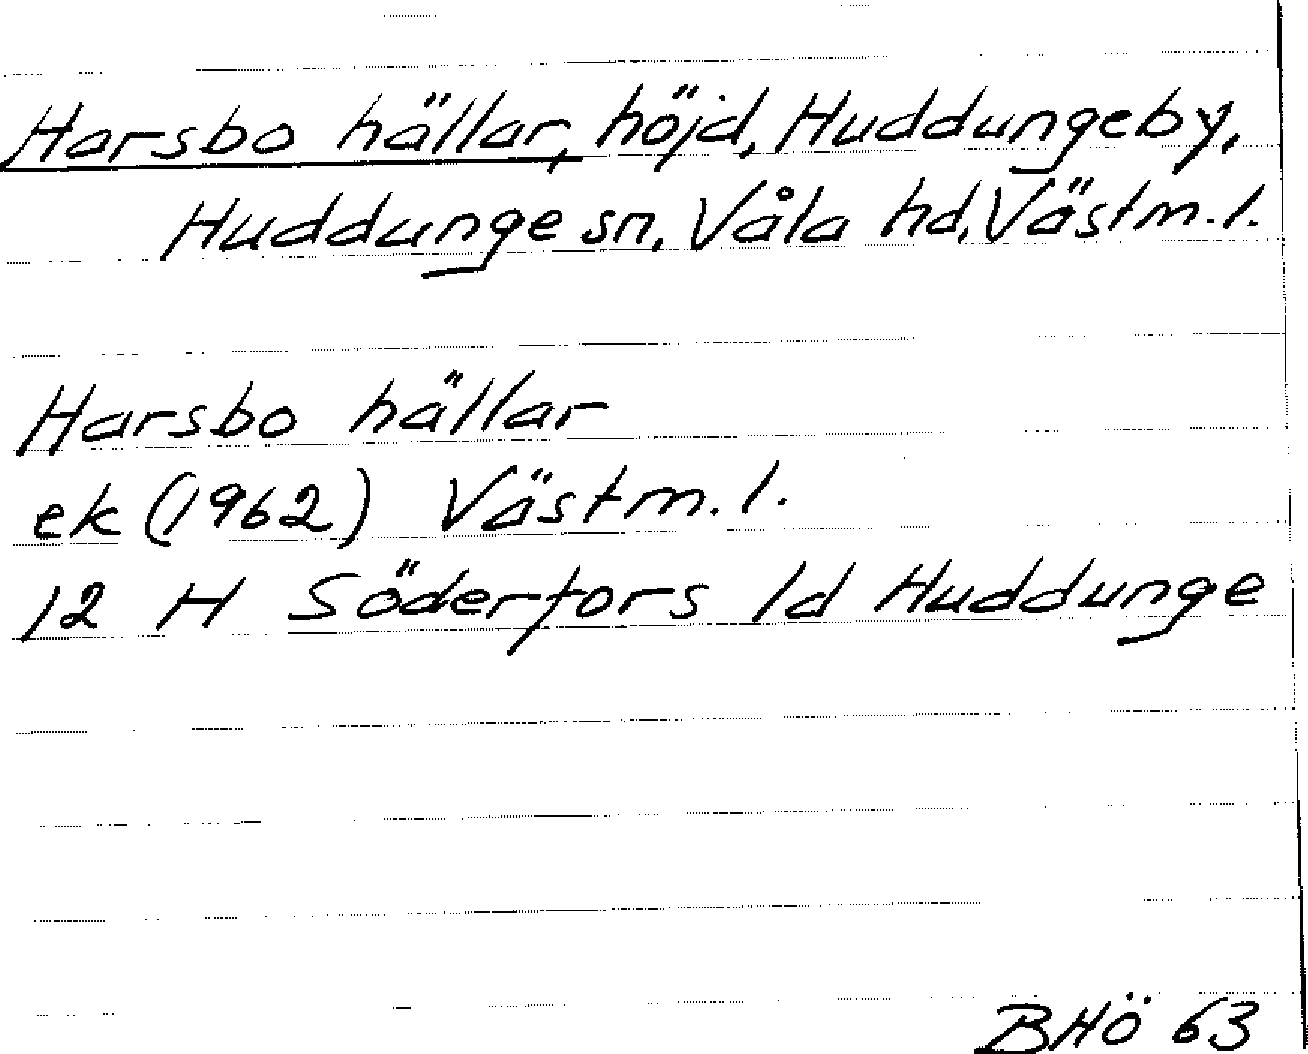 Harsbo hällar, höjd, Huddungeby,
Huddunge sn, Våla hd, Västm. l.
Harsbo hällar
ek (1962) Västm. l.
12 H Söderfors 1d Huddunge
BHÖ 63